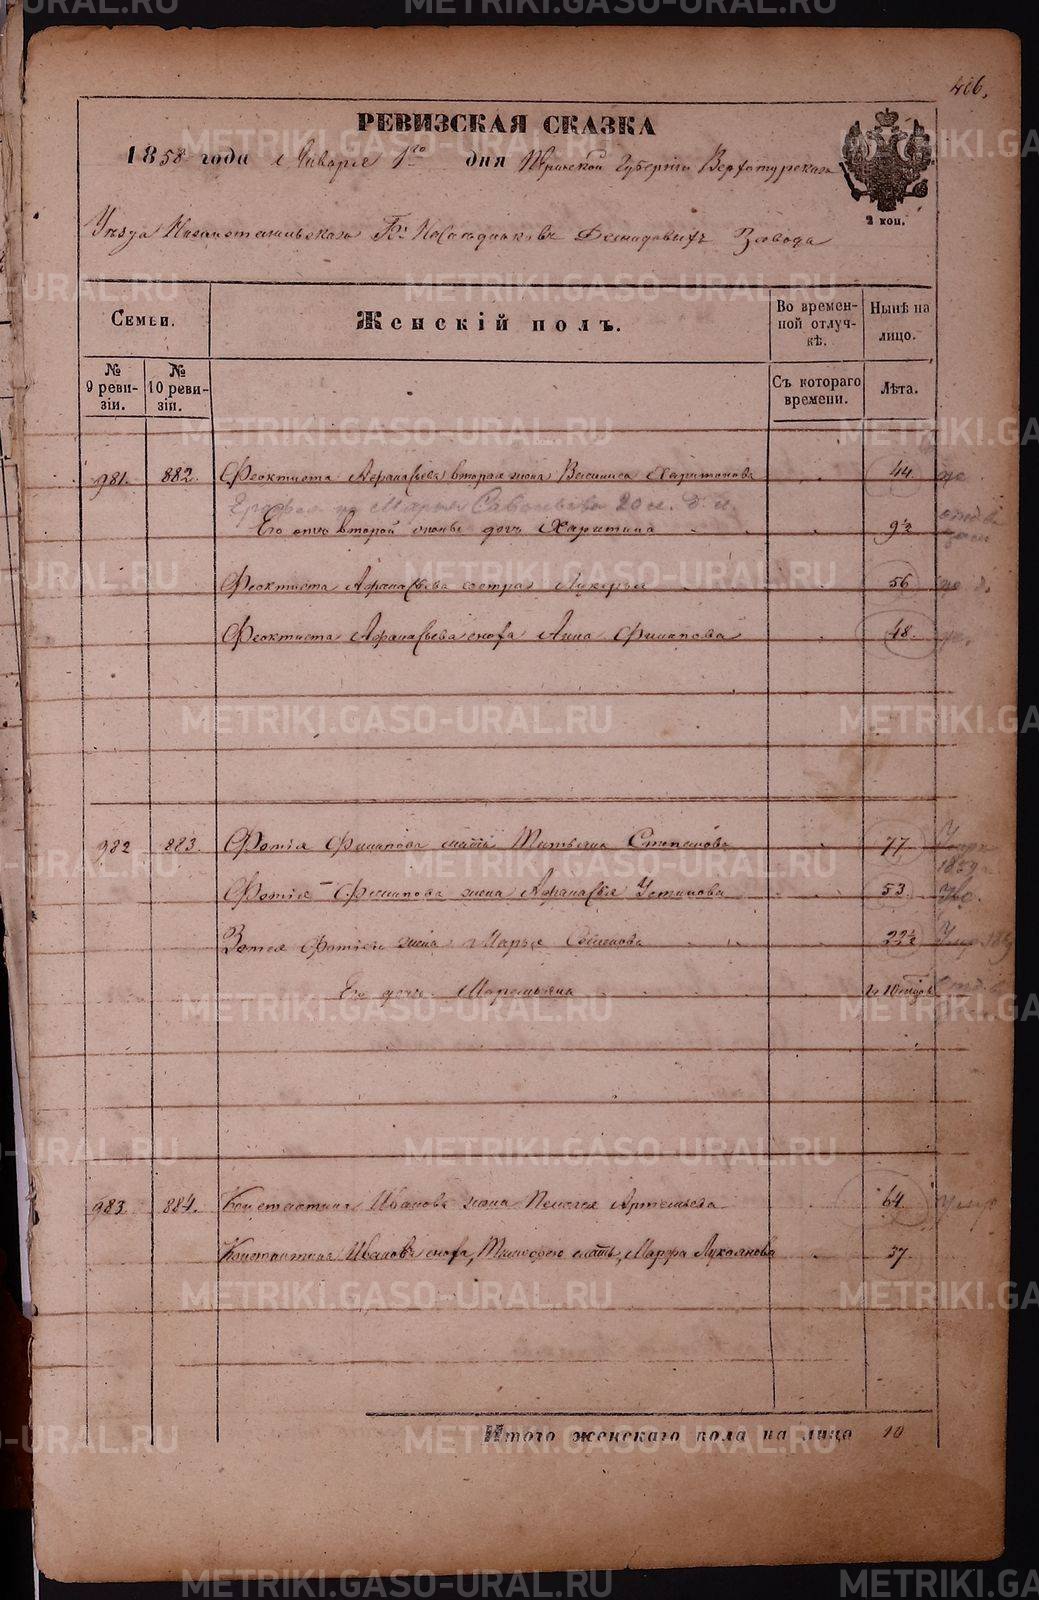 406.
РЕВИЗСКАЯ СКАЗКА
1858 года Января 1го дня Пермской Губернии Верхотурскаго
2 коп.
Уѣзда Нижнетагильскаго Гг. Наслѣдниковъ Демидовыхъ Завода
Семьи.
Женскій полъ.
Во временной отлучкѣ.
Нынѣ на лицо.
№ 9 ревизіи.
№ 10 ревизіи.
Съ котораго времени.
Лѣта.
981. 882. Феоктиста Афанасьева вторая жена Харитонова 44
Марья Савельева 20
Его отъ второй жены дочь Харитина 9½
Феоктиста Афанасьева сестра Лукерья 56
Феоктиста Афанасьева сноха Анна Филипова 48.
982 883. Фотія Филипова мать Татьяна Степанова 77
1859
Фотія Филипова жена Афанасья Устинова 53.
Зотея Фотіева жена Марья Семенова 22½
Его дочь Маремьяна 10
983. 884. Константина Иванова жена Пелагея Артемьева 64
Константина Иванова сноха, Тимофею мать, Марфа Лукоянова 37.
Итого женскаго пола на лицо 10
METRIKI.GASO-URAL.RU